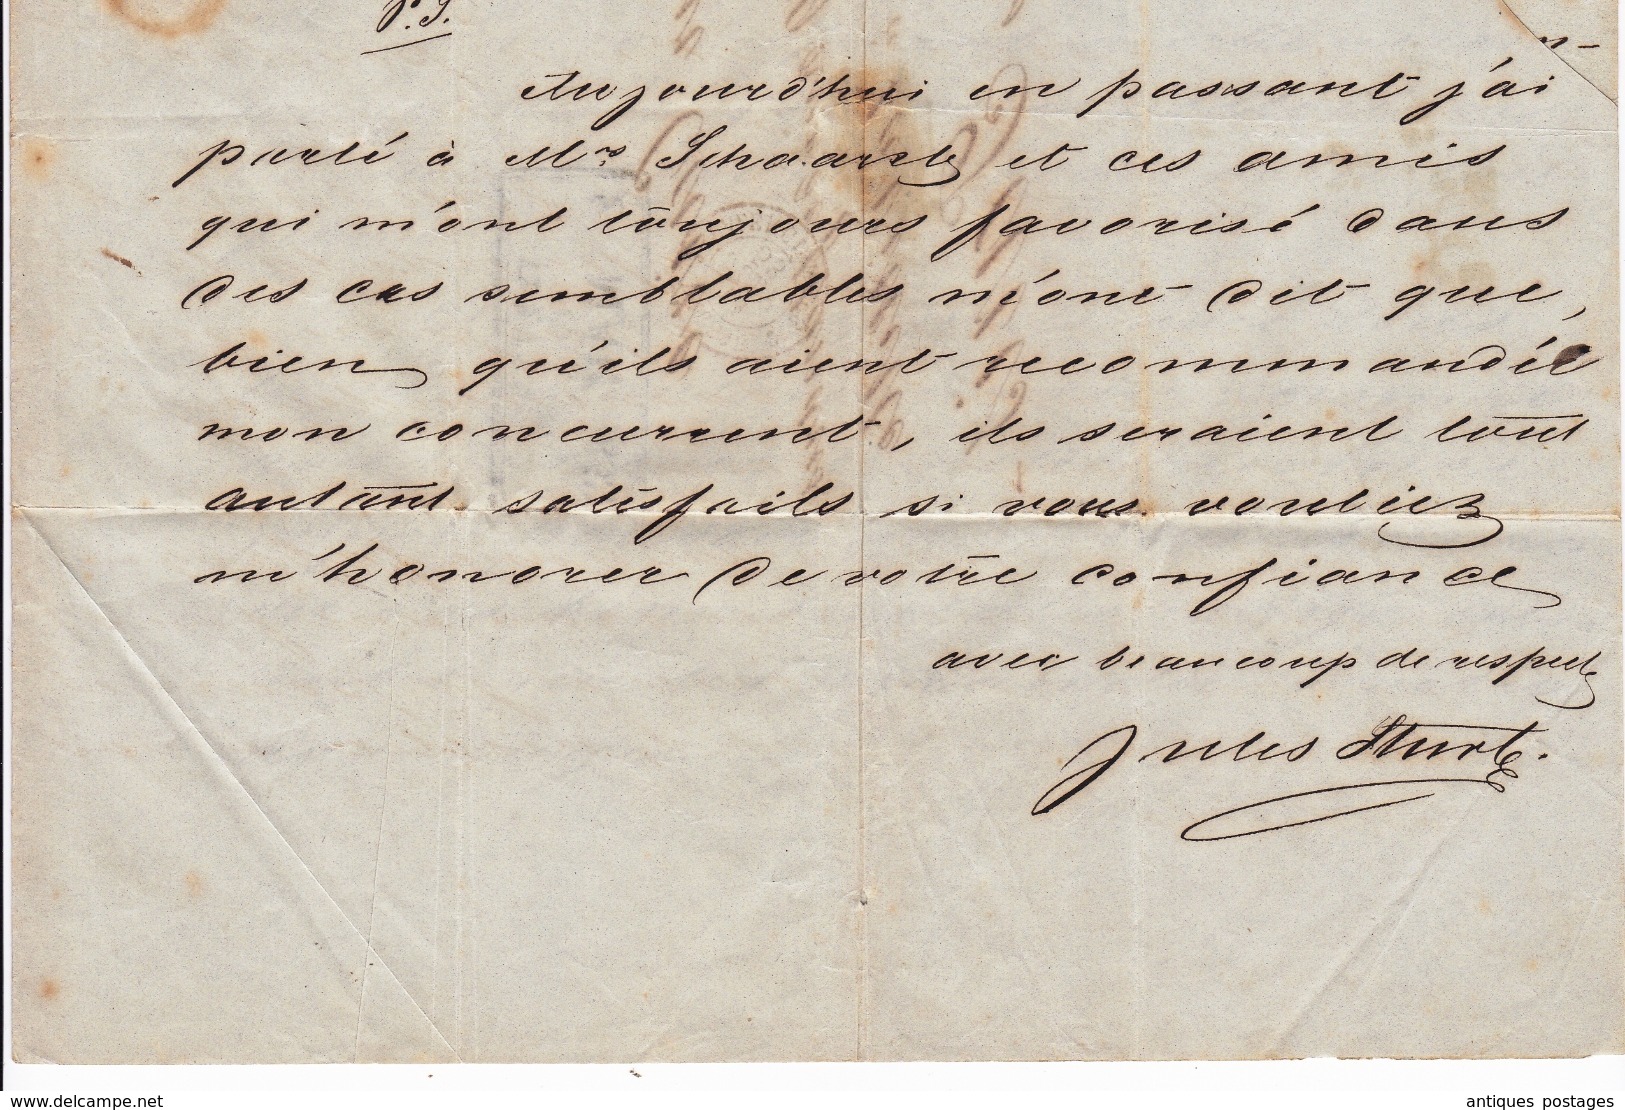 P.S.
Aujourd'hui en passant j'ai
parlé à Mrs et ces amis
qui m'ont toujours favorisé dans
des cas semblables m'ont dit que,
bien qu'ils aient recommandé
mon concurrent, ils seraient tout
autant satisfaits si vous vouliez
m'honorer de votre confiance
avec beaucoup de respect
Jules
www.delcampe.net
antiques postages